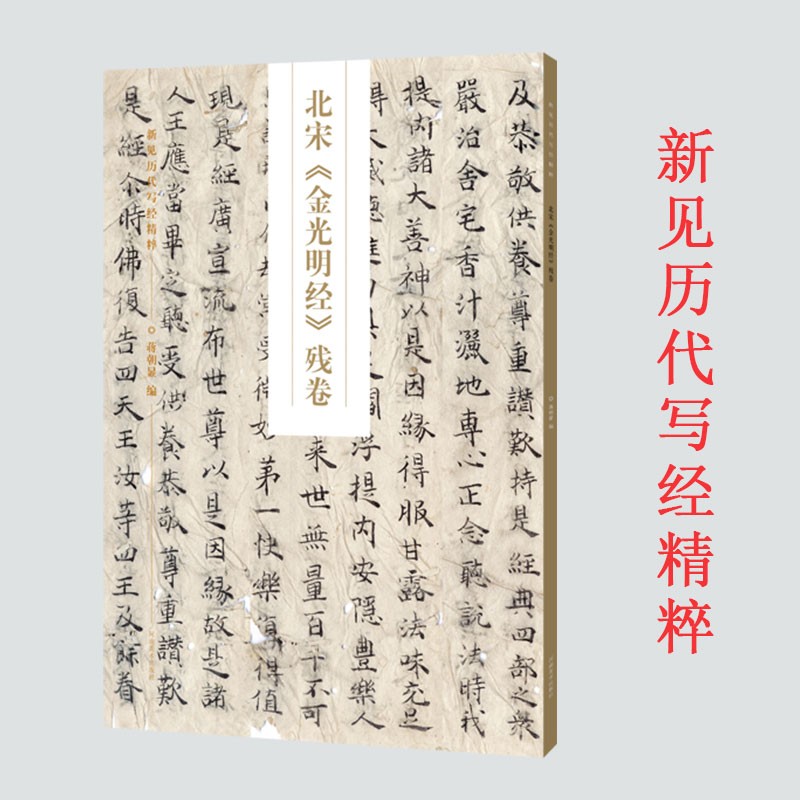 新见历代写经精粹
北宋《金光明经》残卷
及恭敬供養尊重讚歎持是經典四部之衆
嚴治舍宅香汁灑地專心正念聽説法時我
提内諸大善神以是因緣得服甘露法味充足
浮提内安隱豐樂人
来世無量百千不可
微妙第一快樂復得值
現是經廣宣流布世尊以是因緣故是諸
人王應當畢定聽受供養恭敬尊重讚歎
是經尒時佛復告四天王汝等四王及餘眷
北宋《金光明经》残卷
新见历代写经精粹
◎ 蒋朝显 编
新见历代写经精粹